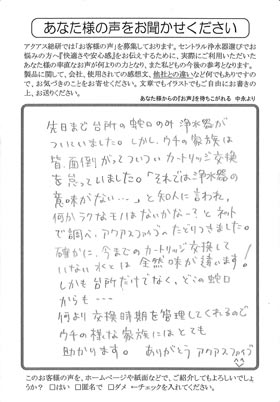 あなた様の声をお聞かせください
アクアス総研では「お客様の声」を募集しております。セントラル浄水器選びでお
悩みの方へ『快適さや安心感』をお伝えするために、実際にご利用いただいた
あなた様の率直なお声が何よりの力となり、また私どもの今後の参考となります。
製品に関して、会社、使用されての感想文、他社との違いなど何でもありですの
で、お気づきのことをお寄せください。文章でもイラストでもご自由にお書きの
上、お送りください。
あなた様からの『お声』を待ちこがれる 中余より
先日まで台所の蛇口のみ浄水器が
ついていました。しかし、ウチの家族は
皆、面倒がってついついカートリッジ交換
を怠っていました。「それでは浄水器の
意味がない…」と知人に言われ、
何かラクなモノはないかな〜?とネット
で調べ、アクアスファイブにたどりつきました。
確かに、今までのカートリッジ交換して
いない水とは全然味が違います!
しかも台所だけでなく、どこの蛇口
からも…
何より交換時期を管理してくれるので
ウチの様な家族にはとても
助かります。ありがとうアクアスファイブ
このお客様の声を、ホームページや紙面などで、ご紹介してもよろしいでしょ
うか? □はい □匿名で □ダメ ←チェックを入れてください